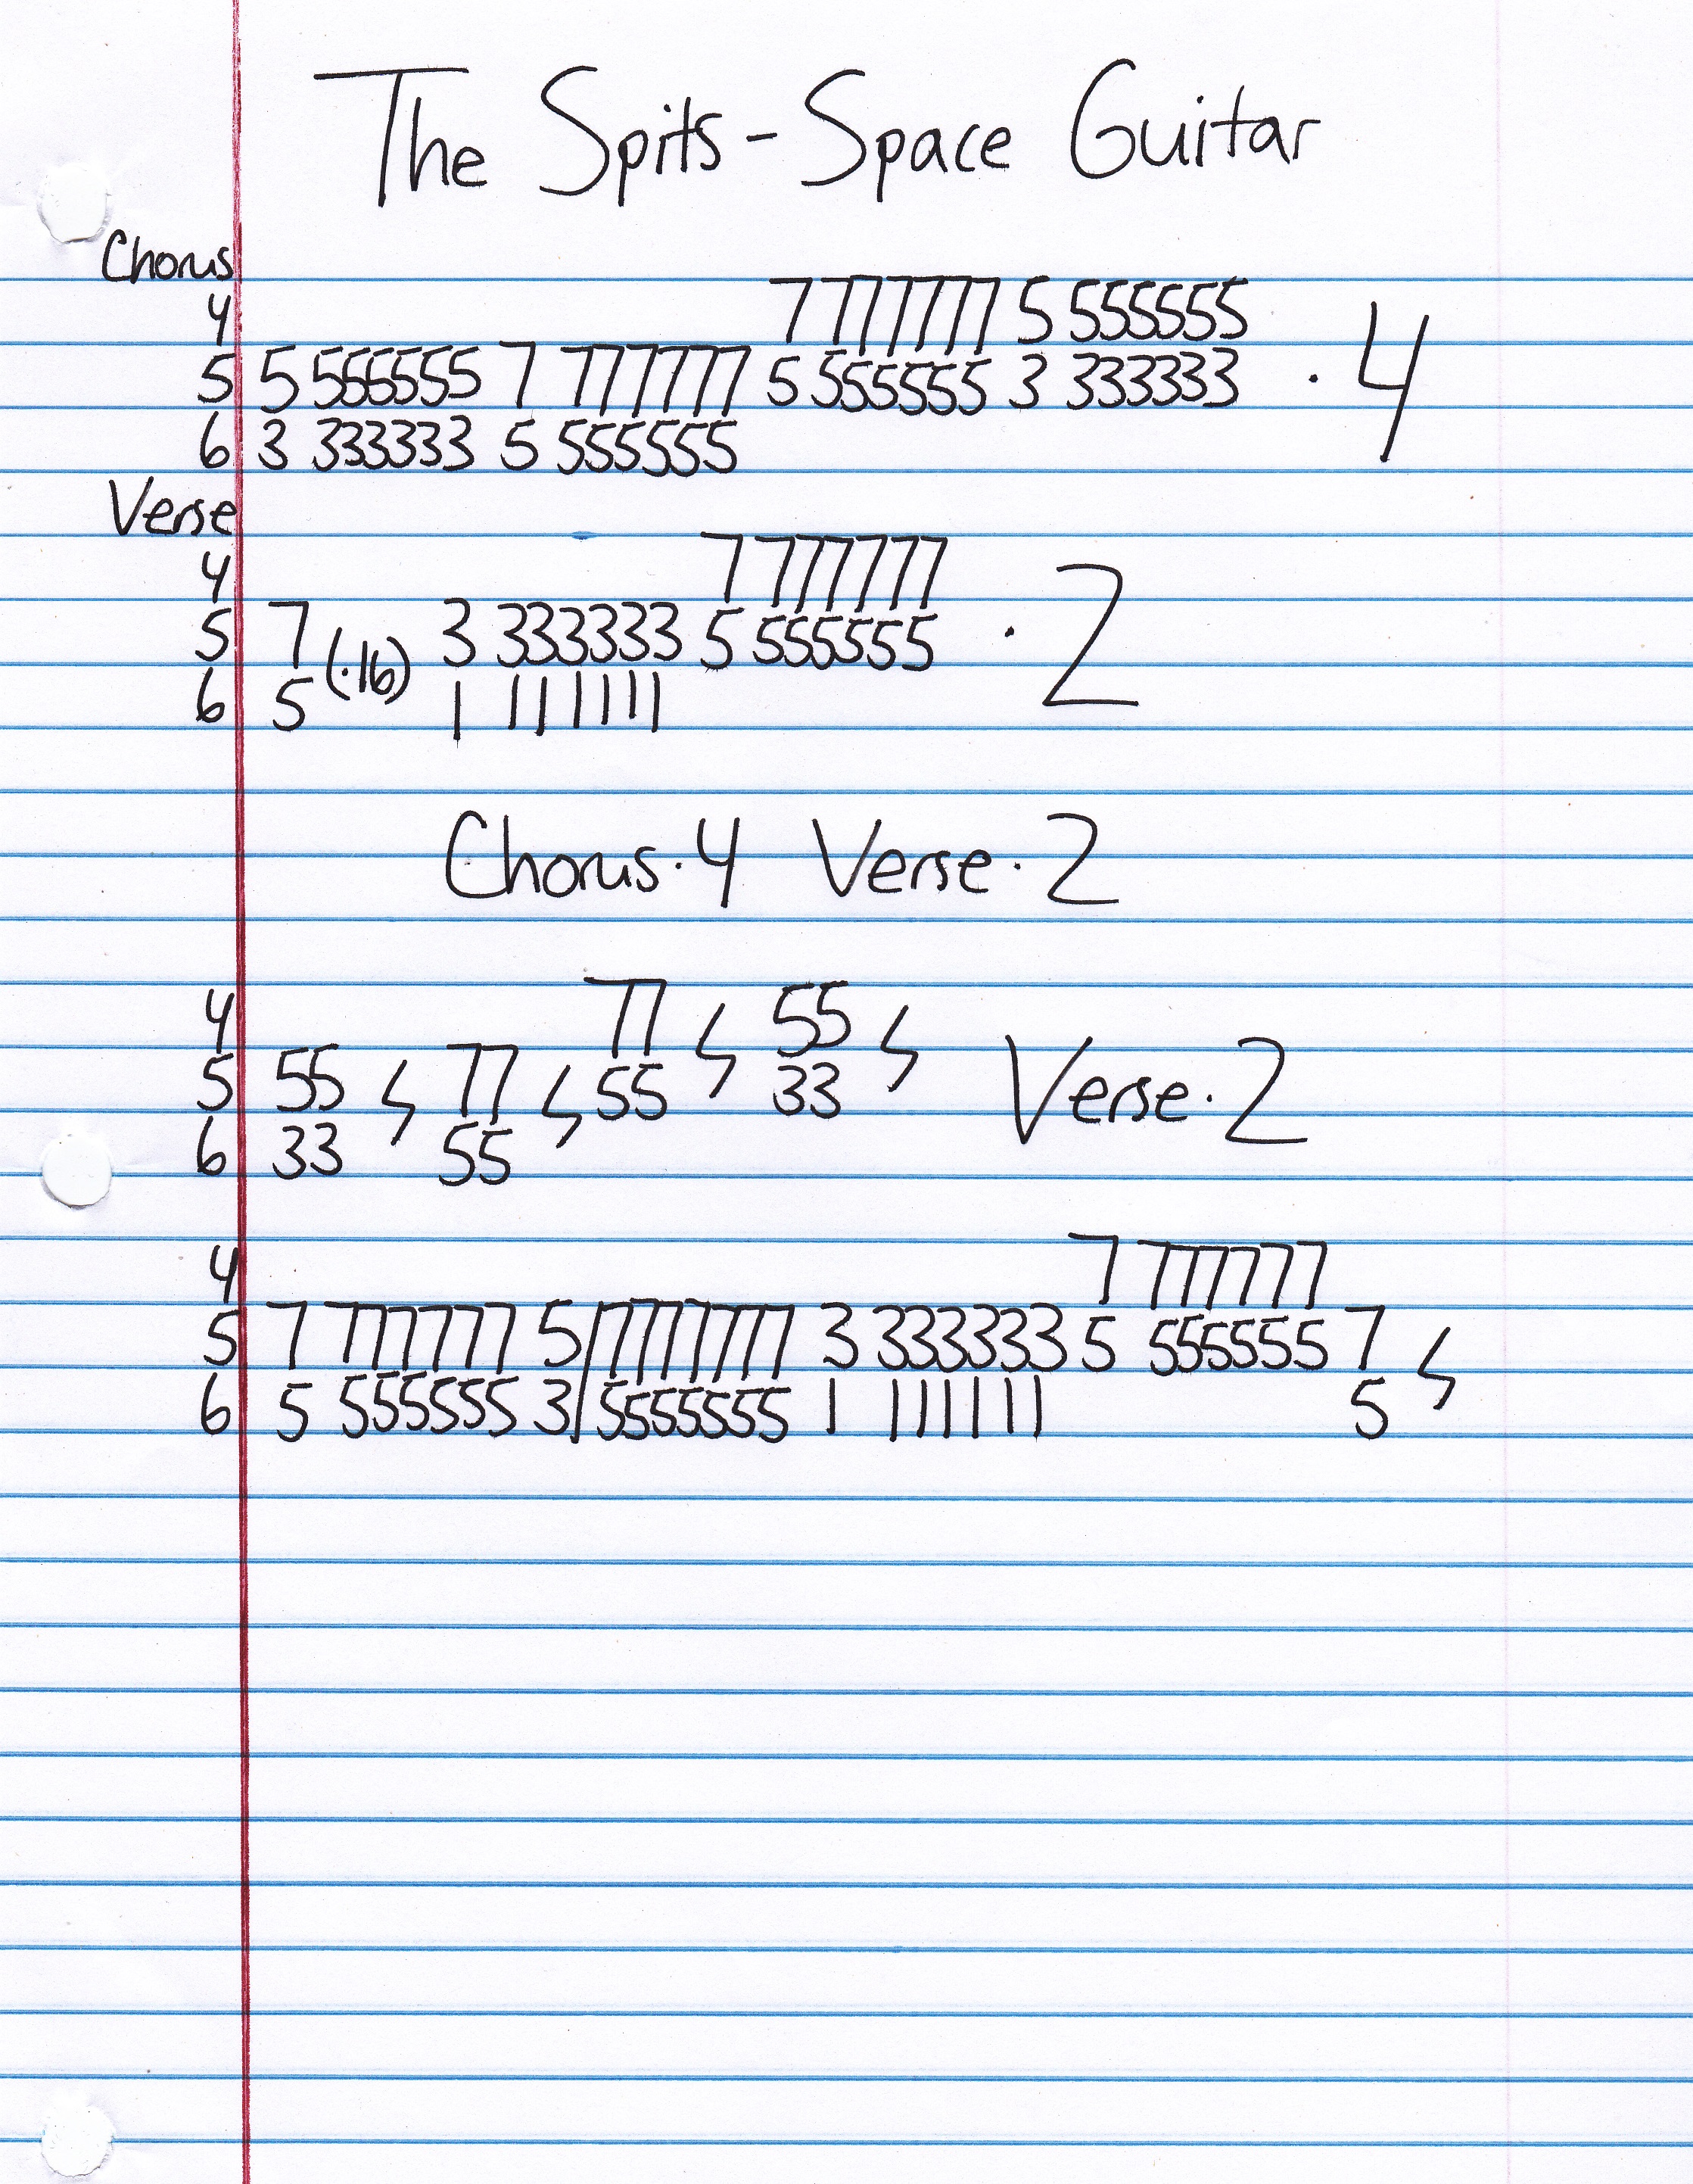 The Spits - Space Guitar
Chorus
4 7 777777 5 555555
5 5 555555 7 777777 5 555555 3 333333 · 4
6 3 333333 5 555555
Verse
4 7 777777
5 7 (·16) 3 333333 5 555555 · 2
6 5 1 111111
Chorus · 4 Verse · 2
4 77 55
5 55 77 55 33 Verse · 2
6 33 55
4 7 777777
5 7 777777 5/7777777 3 333333 5 555555 7
6 5 555555 3/5555555 1 111111 5